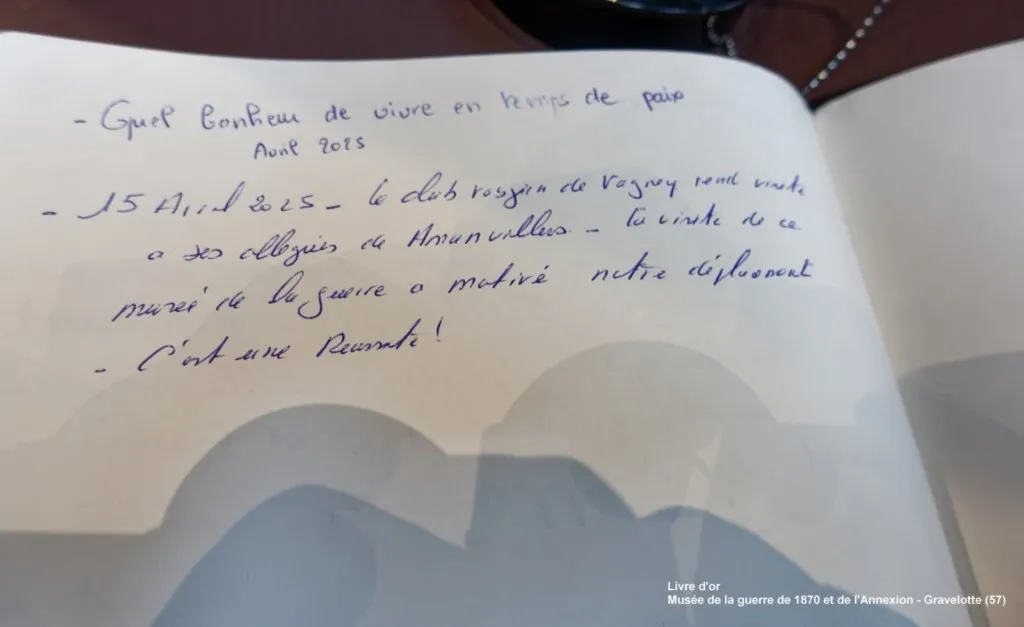 - Quel bonheur de vivre en temps de paix
Avril 2025
- 15 Avril 2025 - le club vosgien de Vagney rend visite
a ses collègues de Amanvillers - la visite de ce
musée de la guerre a motivé notre déplacement
- C'est une Reussite !
Livre d'or
Musée de la guerre de 1870 et de l'Annexion - Gravelotte (57)